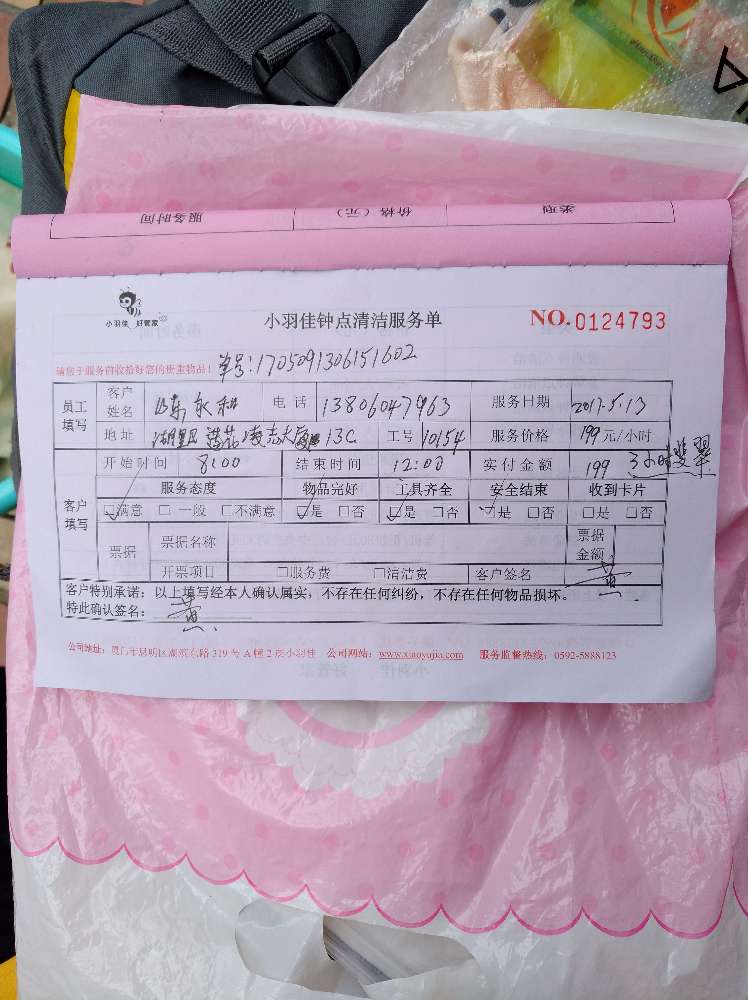 服务时间 价格（元） 类型
小羽佳 好管家
小羽佳钟点清洁服务单
NO.0124793
请您于服务前收拾好您的贵重物品！
单号:1705091306151602
员工填写 客户姓名 永和 电话 13806047963 服务日期 2017.5.13
地址 湖里区莲花凌志大厦13C 工号 10154 服务价格 199元/小时
客户填写 开始时间 8:00 结束时间 12:00 实付金额 199 3小时
服务态度 物品完好 工具齐全 安全结束 收到卡片
☑满意 □一般 □不满意 ☑是 □否 ☑是 □否 ☑是 □否 □是 □否
票据 票据名称 票据金额
开票项目 □服务费 □清洁费 客户签名 黄
客户特别承诺：以上填写经本人确认属实，不存在任何纠纷，不存在任何物品损坏。
特此确认签名： 黄
公司地址：厦门市思明区湖滨东路319号A幢2层小羽佳 公司网站：www.xiaoyujia.com 服务监督热线：0592-5888123